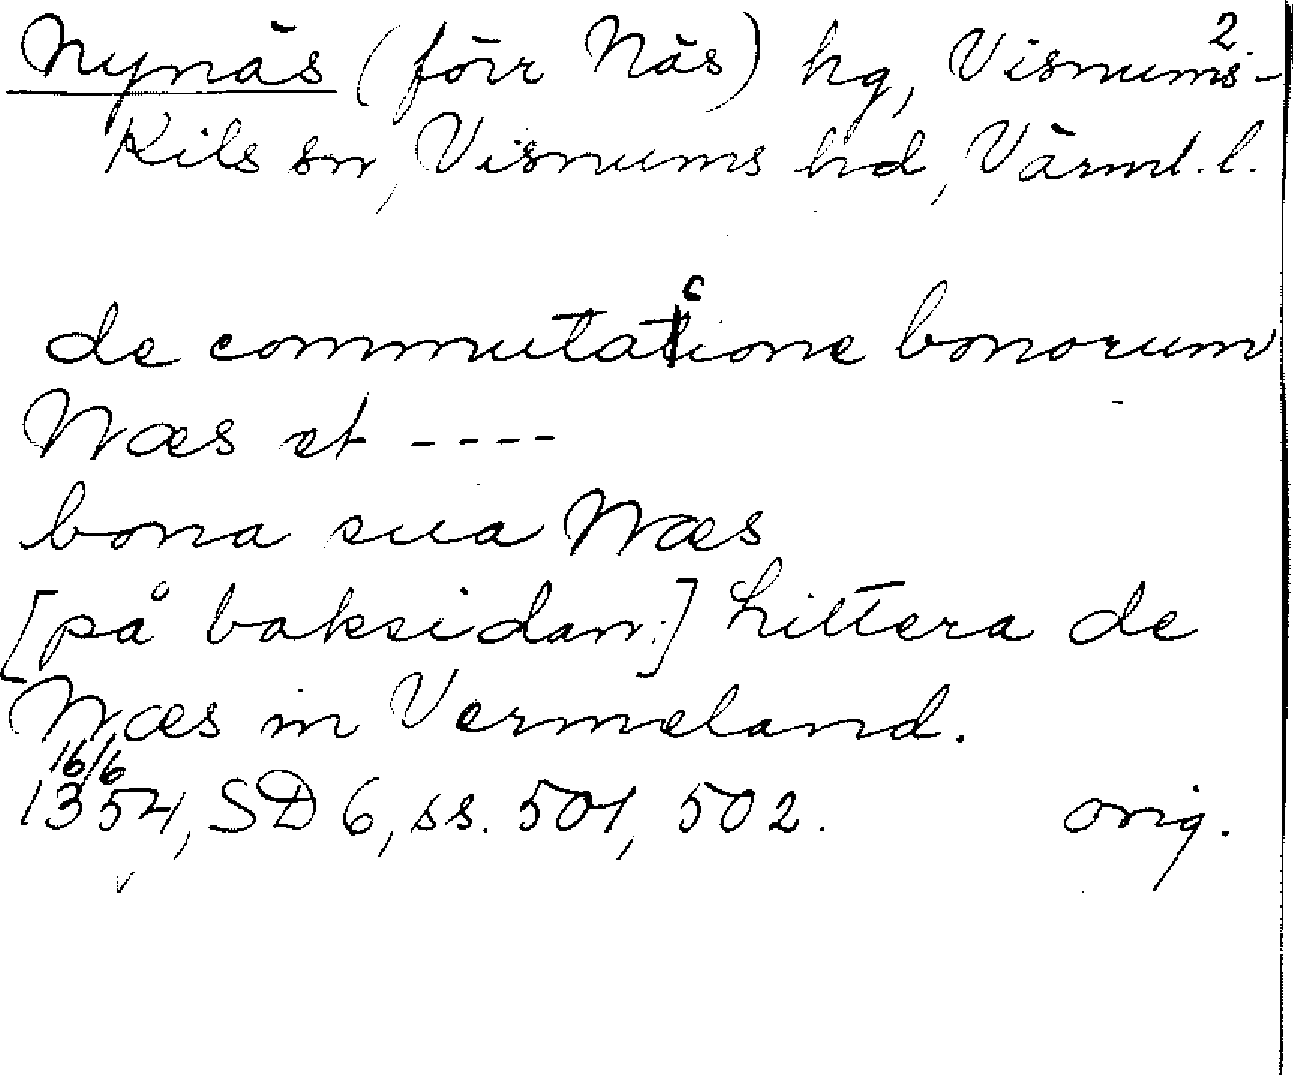 2.
Nynäs (förr Näs) hg, Visnums-
Kils sn, Visnums hd, Värml. l.
de commutacione bonorum
Næs et ----
bona sua Næs
[på baksidan:] Littera de
Næs in Vermeland.
16/6
1354, SD 6, ss. 501, 502. orig.